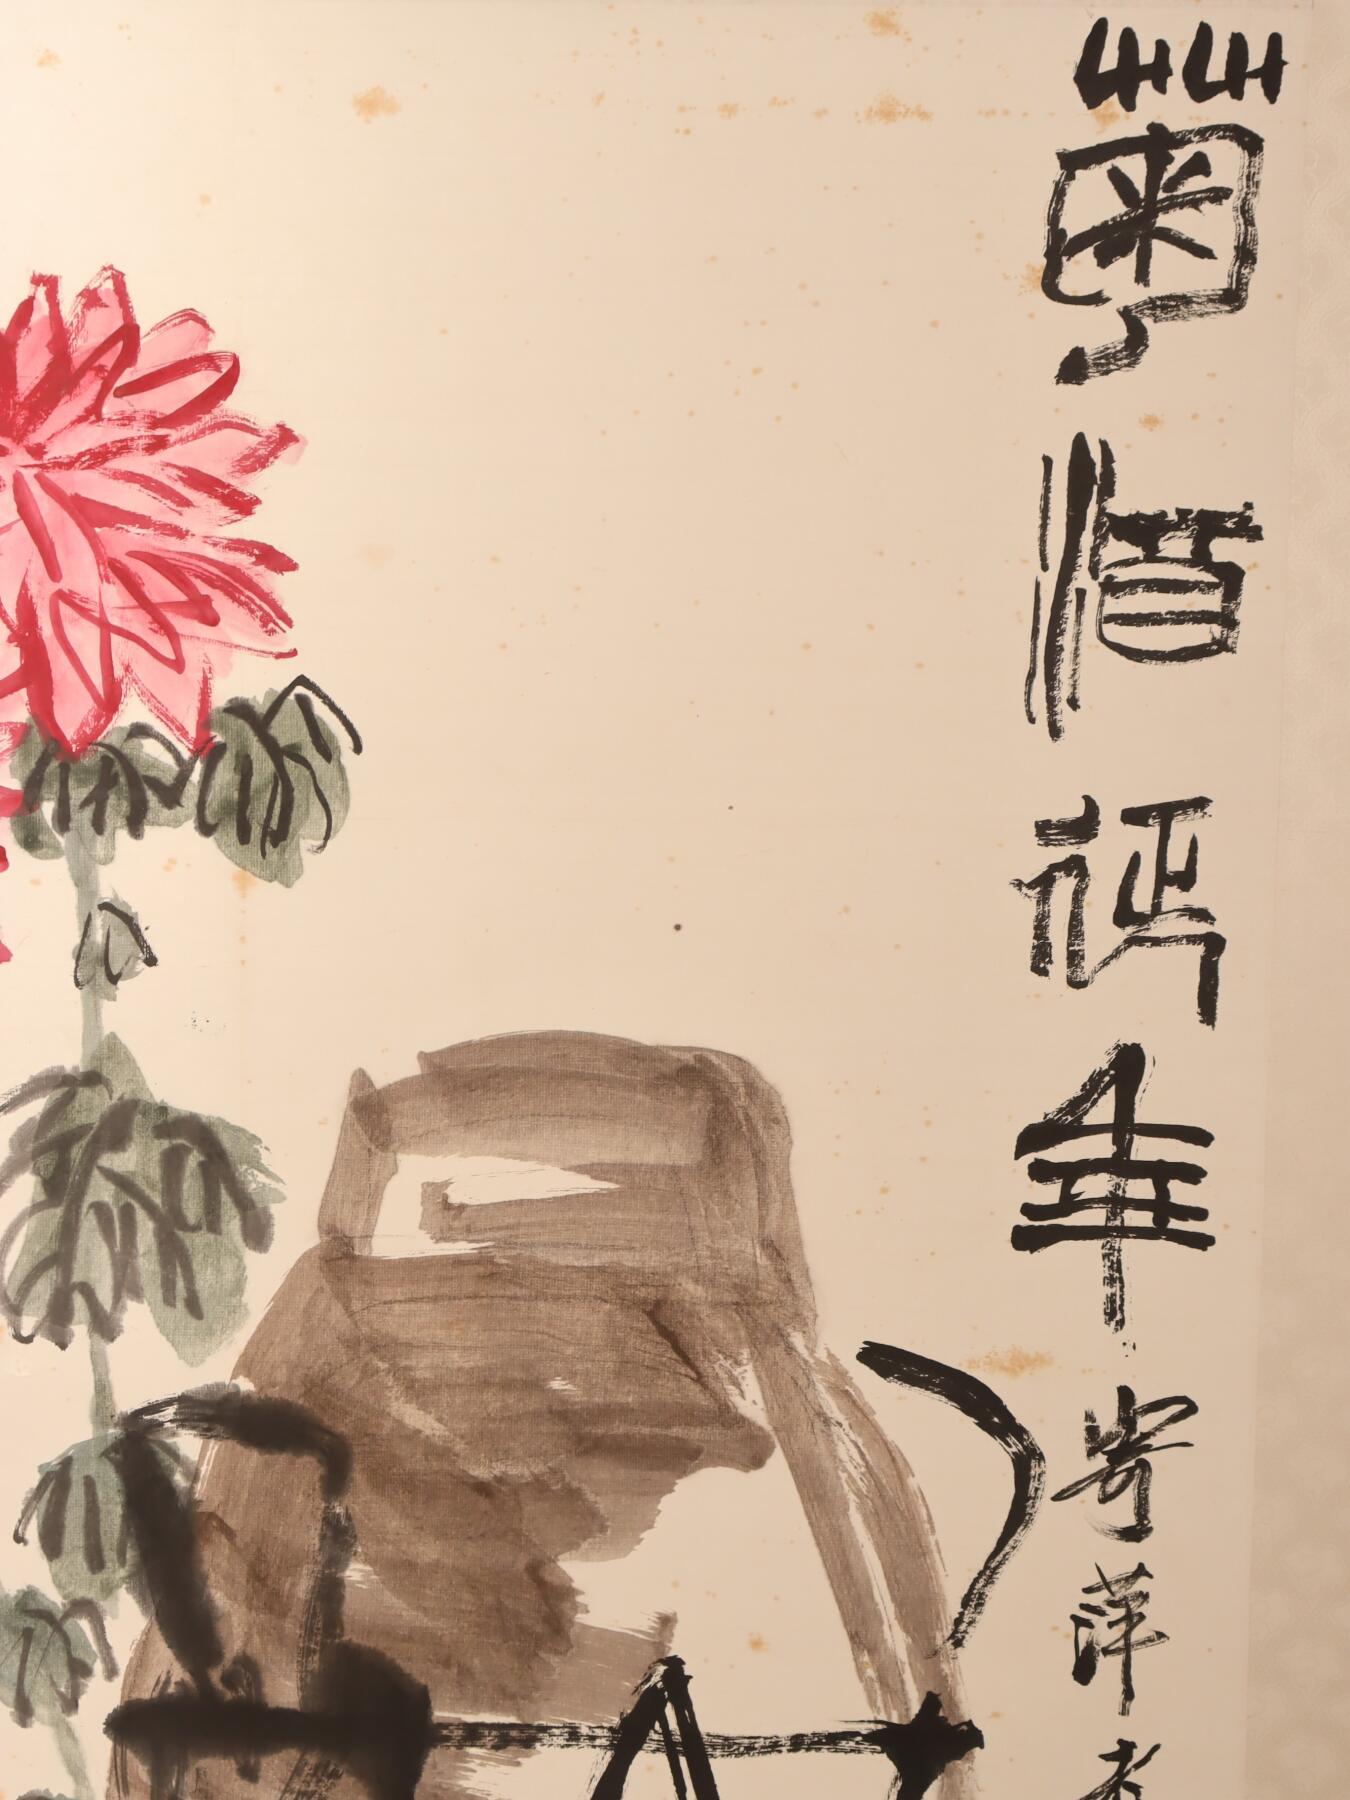 菊酒延年寄萍老